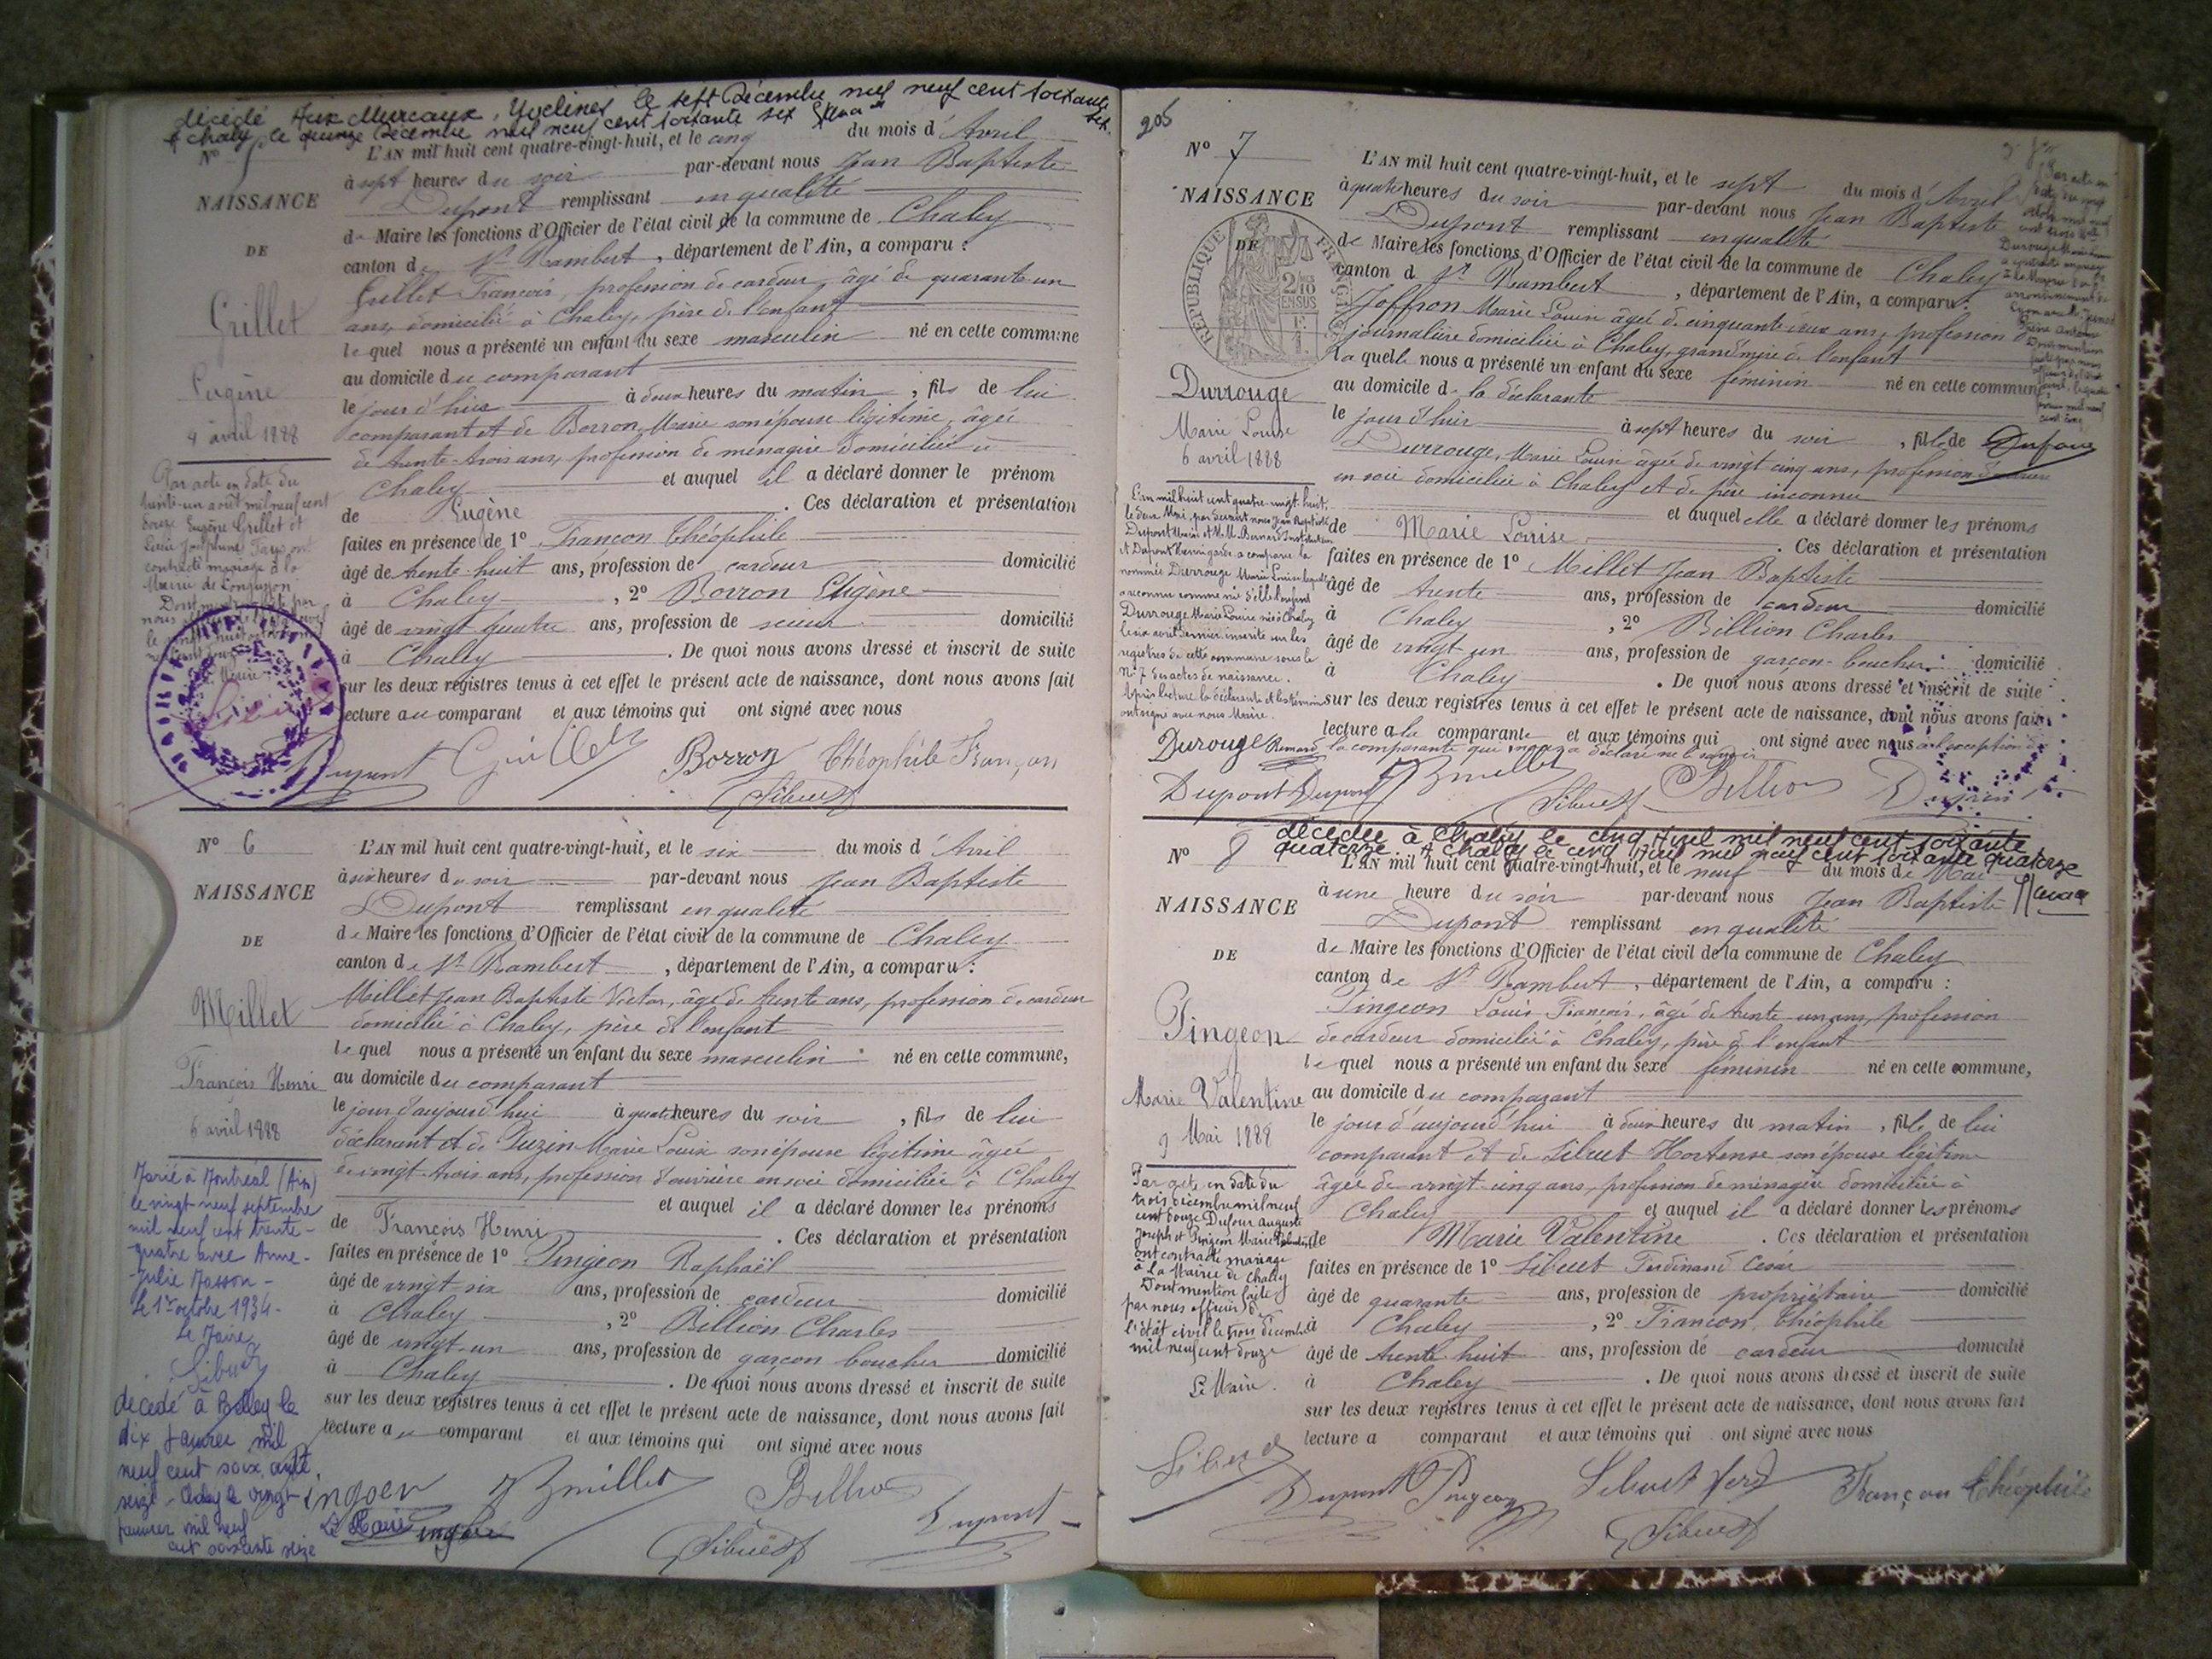 décédé Aux Mureaux, Yvelines le sept Décembre mil neuf cent soixante six.
Chaley le quinze Décembre mil neuf cent soixante six
N° 5
NAISSANCE
DE
Grillet
Eugène
4 avril 1888
Par acte en date du
trente-un août mil neuf cent
douze Eugène Grillet et
contracté mariage à la
Mairie de
L'AN mil huit cent quatre-vingt-huit, et le cinq du mois d'Avril
à sept heures du soir par-devant nous Jean Baptiste
Dupont remplissant en qualité
de Maire les fonctions d'Officier de l'état civil de la commune de Chaley
canton de St Rambert, département de l'Ain, a comparu :
Grillet François, profession de cardeur, âgé de quarante un
ans, domicilié à Chaley, père de l'enfant
lequel nous a présenté un enfant du sexe masculin né en cette commune
au domicile du comparant
le jour d'hier à deux heures du matin, fils de lui
comparant et de Borron Marie son épouse légitime, âgée
de trente-trois ans, profession de ménagère domiciliée à
Chaley et auquel il a déclaré donner le prénom
de Eugène. Ces déclaration et présentation
faites en présence de 1° Françon Théophile
âgé de trente-huit ans, profession de cardeur domicilié
à Chaley, 2° Borron Eugène
âgé de vingt quatre ans, profession de scieur domicilié
à Chaley. De quoi nous avons dressé et inscrit de suite
sur les deux registres tenus à cet effet le présent acte de naissance, dont nous avons fait
lecture au comparant et aux témoins qui ont signé avec nous
Dupont Grillet Borron Théophile Françon
Sibuet
N° 6
NAISSANCE
DE
Millet
François Henri
6 avril 1888
Marié à Montréal (Ain)
le vingt-neuf septembre
mil neuf cent trente-
quatre avec Anne-
Julie Masson -
Le 1er octobre 1934-
Le Maire,
Sibuet
décédé à Belley le
dix Janvier mil
neuf cent soixante
seize - Chaley le vingt
janvier mil neuf
cent soixante seize
Le Maire
L'AN mil huit cent quatre-vingt-huit, et le six du mois d'Avril
à six heures du soir par-devant nous Jean Baptiste
Dupont remplissant en qualité
de Maire les fonctions d'Officier de l'état civil de la commune de Chaley
canton de St Rambert, département de l'Ain, a comparu :
Millet Jean Baptiste Victor, âgé de trente ans, profession de cardeur
domicilié à Chaley, père de l'enfant
lequel nous a présenté un enfant du sexe masculin né en cette commune,
au domicile du comparant
le jour d'aujourd'hui à quatre heures du soir, fils de lui
déclarant et de Puzin Marie Louise son épouse légitime âgée
de vingt-trois ans, profession d'ouvrière en soie domiciliée à Chaley
et auquel il a déclaré donner les prénoms
de François Henri. Ces déclaration et présentation
faites en présence de 1° Pingeon Raphaël
âgé de vingt six ans, profession de cardeur domicilié
à Chaley, 2° Billion Charles
âgé de vingt-un ans, profession de garçon boucher domicilié
à Chaley. De quoi nous avons dressé et inscrit de suite
sur les deux registres tenus à cet effet le présent acte de naissance, dont nous avons fait
lecture au comparant et aux témoins qui ont signé avec nous
Pingeon JBmillet Billion Dupont
Sibuet
205
N° 7
NAISSANCE
DE
RÉPUBLIQUE FRANÇAISE
2/10 EN SUS
Durrouge
Marie Louise
6 avril 1888
L'an mil huit cent quatre-vingt-huit,
le deux Mai, par devant nous Jean Baptiste
Dupont Maire et M.M. Bernard Instituteur
et Dupont garde a comparu la
nommée Durrouge Marie Louise laquelle
a reconnu comme né d'elle l'enfant
Durrouge Marie Louise née à Chaley
le six avril dernier inscrite sur les
registres de cette commune sous le
N° 7 des actes de naissance.
Après lecture la déclarante et les témoins
ont signé avec nous Maire.
Durouge Bernard
Dupont Dupont
L'AN mil huit cent quatre-vingt-huit, et le sept du mois d'Avril
à quatre heures du soir par-devant nous Jean Baptiste
Dupont remplissant en qualité
de Maire les fonctions d'Officier de l'état civil de la commune de Chaley
canton d St Rambert, département de l'Ain, a comparu :
Joffron Marie Louise âgée de cinquante-deux ans, profession de
journalière domiciliée à Chaley, grand'mère de l'enfant
laquelle nous a présenté un enfant du sexe féminin né en cette commune,
au domicile de la déclarante
le jour d'hier à sept heures du soir, fille de Dufour
Durrouge, Marie Louise âgée de vingt cinq ans, profession d'ouvrière
en soie domiciliée à Chaley et de père inconnu
et auquel elle a déclaré donner les prénoms
de Marie Louise. Ces déclaration et présentation
faites en présence de 1° Millet Jean Baptiste
âgé de trente ans, profession de cardeur domicilié
à Chaley, 2° Billion Charles
âgé de vingt un ans, profession de garçon-boucher domicilié
à Chaley. De quoi nous avons dressé et inscrit de suite
sur les deux registres tenus à cet effet le présent acte de naissance, dont nous avons fait
lecture à la comparante et aux témoins qui ont signé avec nous à l'exception de
la comparante qui nous a déclaré ne le savoir
JBmillet Sibuet Billion Dupont
décédée à Chaley le cinq Avril mil neuf cent soixante
quatorze. A Chaley le cinq Avril mil neuf cent soixante quatorze
N° 8
NAISSANCE
DE
Pingeon
Marie Valentine
9 Mai 1888
Par acte en date du
trois décembre mil neuf
cent douze Dufour Auguste
Joseph et Pingeon Marie Valentine
ont contracté mariage
à la Mairie de Chaley
Dont mention faite
par nous officier de
l'état civil le trois décembre
mil neuf cent douze
Le Maire.
Sibuet
L'AN mil huit cent quatre-vingt-huit, et le neuf du mois de Mai
à une heure du soir par-devant nous Jean Baptiste
Dupont remplissant en qualité
de Maire les fonctions d'Officier de l'état civil de la commune de Chaley
canton de St Rambert, département de l'Ain, a comparu :
Pingeon Louis François, âgé de trente-un ans, profession
de cardeur domicilié à Chaley, père de l'enfant
lequel nous a présenté un enfant du sexe féminin né en cette commune,
au domicile du comparant
le jour d'aujourd'hui à deux heures du matin, fille de lui
comparant et de Sibuet Hortense son épouse légitime
âgée de vingt-cinq ans, profession de ménagère domiciliée à
Chaley et auquel il a déclaré donner les prénoms
de Marie Valentine. Ces déclaration et présentation
faites en présence de 1° Sibuet Ferdinand César
âgé de quarante ans, profession de propriétaire domicilié
à Chaley, 2° Françon, Théophile
âgé de trente huit ans, profession de cardeur domicilié
à Chaley. De quoi nous avons dressé et inscrit de suite
sur les deux registres tenus à cet effet le présent acte de naissance, dont nous avons fait
lecture a comparant et aux témoins qui ont signé avec nous
Dupont Pingeon Sibuet Ferd Françon Théophile
Sibuet